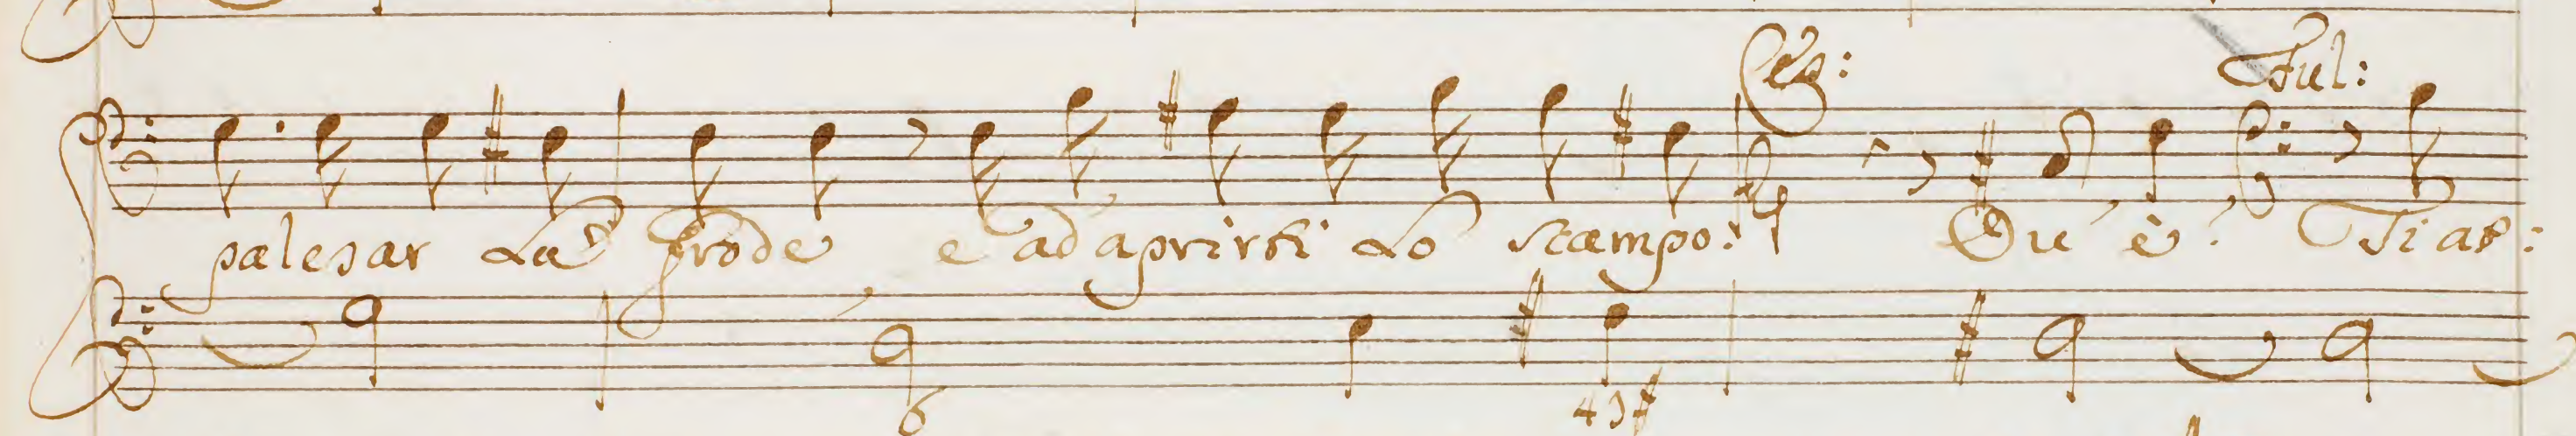 Ces: Ful:
palesar La frode e ad aprirti Lo scampo: Qu' è? Ti ar:
6 43#